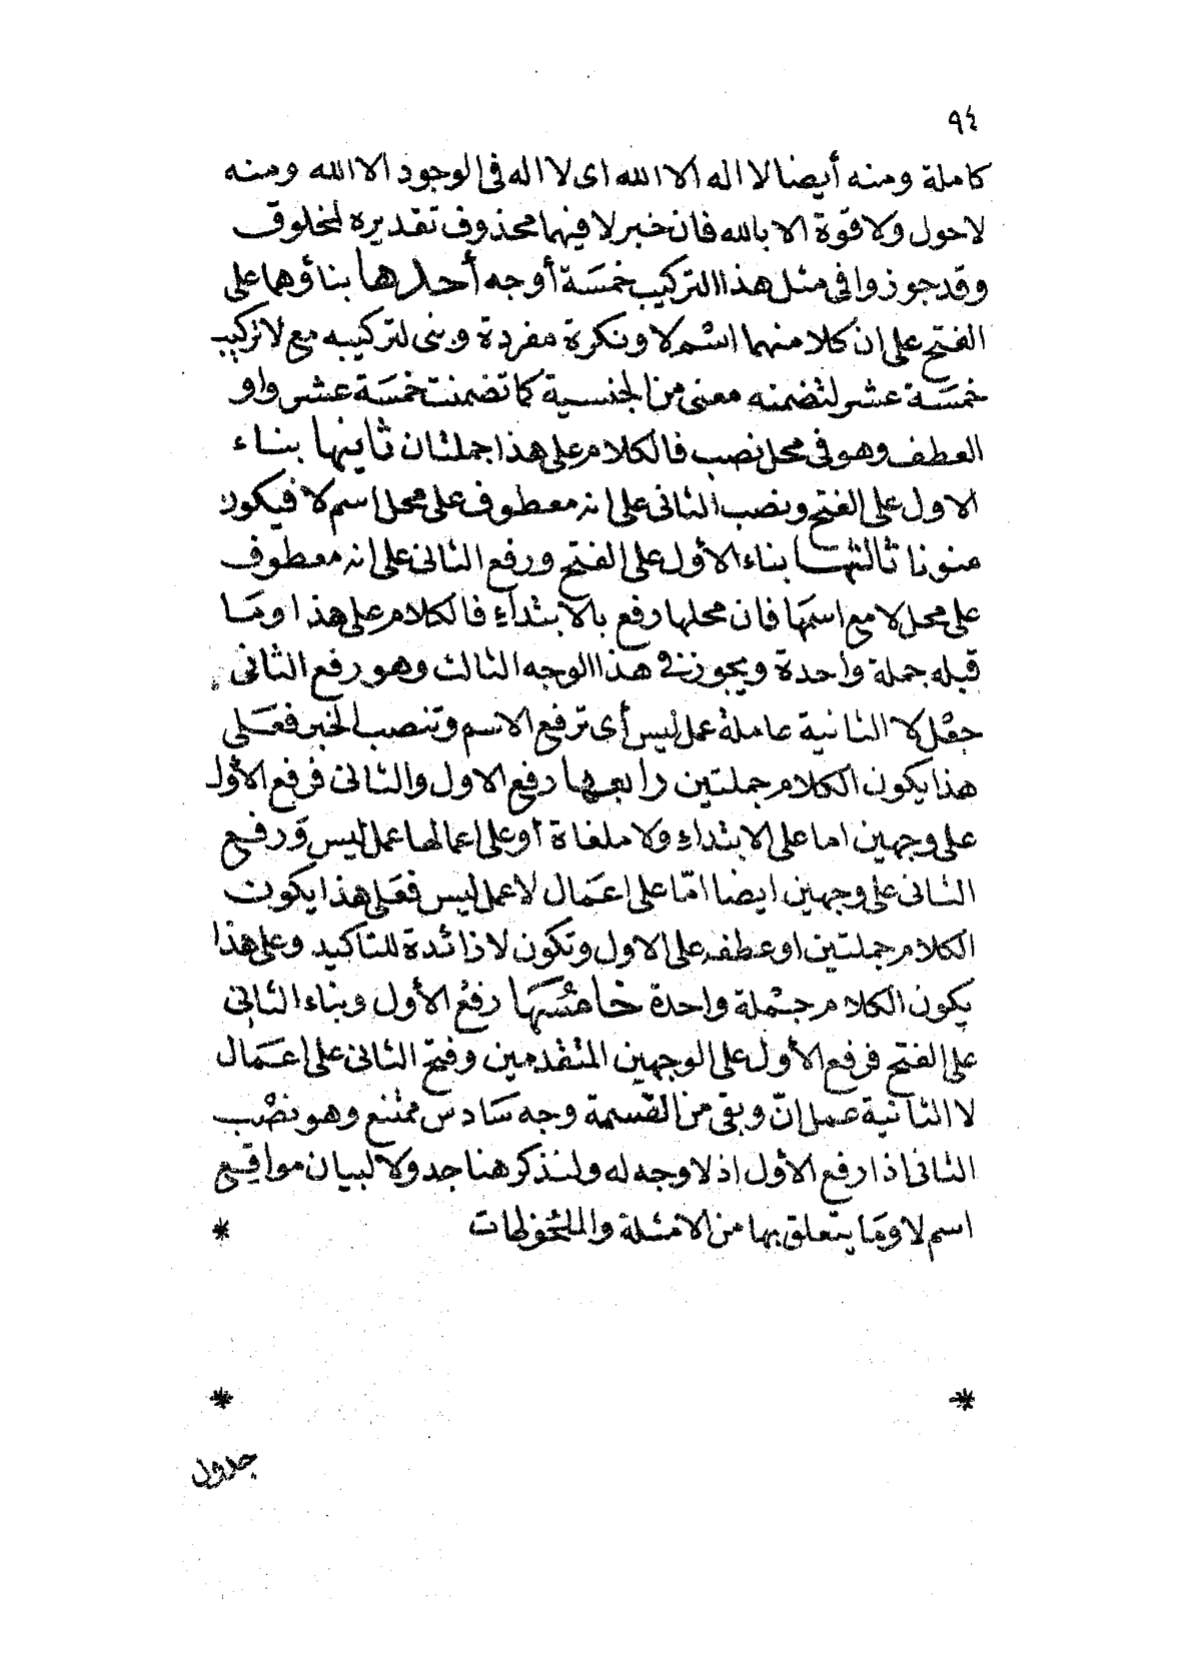 ٩٤
كاملة ومنه أيضا لا اله الا الله اى لا اله فى الوجود الا الله ومنه
لا حول ولا قوة الا بالله فان خبر لا فيهما محذوف تقديره لمخلوق
وقد جوزوا فى مثل هذا التركيب خمسَة أوجه أحدها بناؤهما على
الفتح على ان كلا منهما اسْم لا ونكرة مفردة وبنى لتركيبه مع لا تركيب
خمسَة عشر لتضمنه معنى من الجنسية كما تضمنت خمسَة عشر واو
العطف وهو فى محل نصب فالكلام على هذا جملتان ثانيها بناء
الاول على الفتح ونصب الثانى على انه معطوف على محل اسم لا فيكون
منونا ثالثها بناء الأول على الفتح ورفع الثانى على انه معطوف
على محل لا مع اسمَها فان محلها رفع بالابتداءِ فالكلام على هذا ومَا
قبله جملة واحدة ويجوز فى هذا الوجه الثالث وهو رفع الثانى
جعْل لا الثانية عاملة عمل ليس أى ترفع الاسم وتنصب الخبر فعَلى
هذا يكون الكلام جملتين رابعها رفع الاول والثانى فرفع الأول
على وجهين اما على الابتداءِ ولا ملغاة أو على اعمالها عمل ليس وَرفع
الثانى على وجهين ايضا امّا على اعمَال لا عمل ليس فعَلى هذا يكون
الكلام جملتين او عطفه على الاول وتكون لا زائدة للتاكيد وعلى هذا
يكون الكلام جمْلة واحدة خامسُهَا رفعُ الأول وبناء الثانى
على الفتح فرفع الأول على الوجهين المتقدمين وفتح الثانى على اعمَال
لا الثانية عمل انّ وبقى من القسمة وجه سَادس ممتنع وهو نصْب
الثانى اذا رفع الأول اذ لا وجه له ولنذكر هنا جدولا لبيان مواقع
اسم لا ومَا يتعلق بها من الامثلة والملحوظات *
* *
جدول